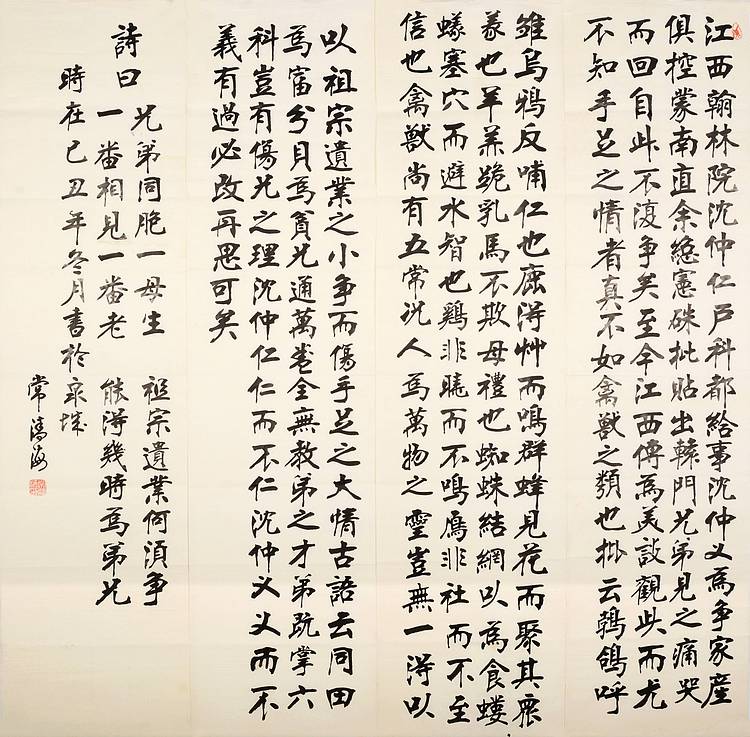 江西翰林院沈仲仁戶科都給事沈仲义為争家產
俱控蒙南直余總憲硃批貼出轅門兄弟見之痛哭
而回自此不復争矣至今江西傳為美談觀此而尤
不知手足之情者真不如禽獸之類也批云鶺鴒呼
雛烏鴉反哺仁也鹿得艸而鳴群蜂見花而聚其衆
義也羊羔跪乳馬不欺母禮也蜘蛛結網以為食螻
蟻塞穴而避水智也鷄非曉而不鳴鴈非社而不至
信也禽獸尚有五常況人為萬物之靈豈無一得以
以祖宗遺業之小争而傷手足之大情古語云同田
為富分貝為貧兄通萬卷全無教弟之才弟既掌六
科豈有傷兄之理沈仲仁仁而不仁沈仲义义而不
義有過必改再思可矣
詩曰 兄弟同胞一母生 祖宗遺業何須争
一番相見一番老 能得幾時為弟兄
時在己丑年冬月書於泉城
常海